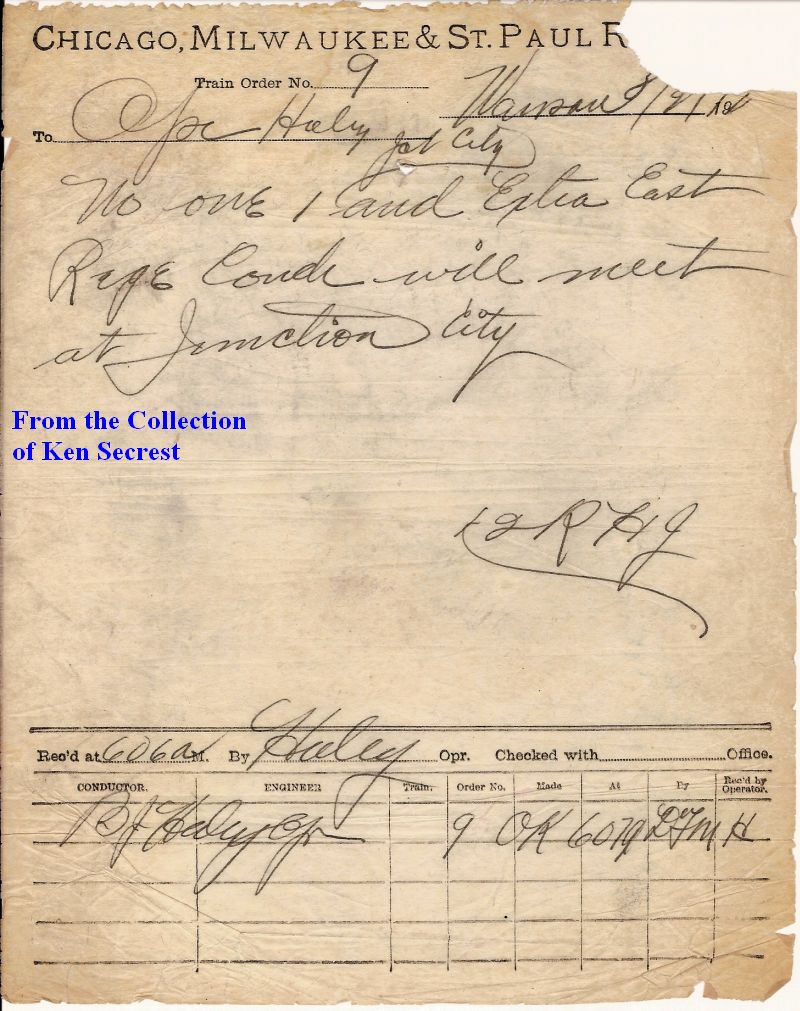 CHICAGO, MILWAUKEE & ST. PAUL R
Train Order No. 9
Wausau 8/21/12
To Opr Haley Jct City
No one 1 and Extra East
Rige Condr will meet
at Junction City
From the Collection
of Ken Secrest
12 R H J
Rec'd at 606 a M. By Haley Opr. Checked with Office.
CONDUCTOR. ENGINEER Train. Order No. Made At By Rec'd by Operator.
B J Haley Opr 9 OK 607a H